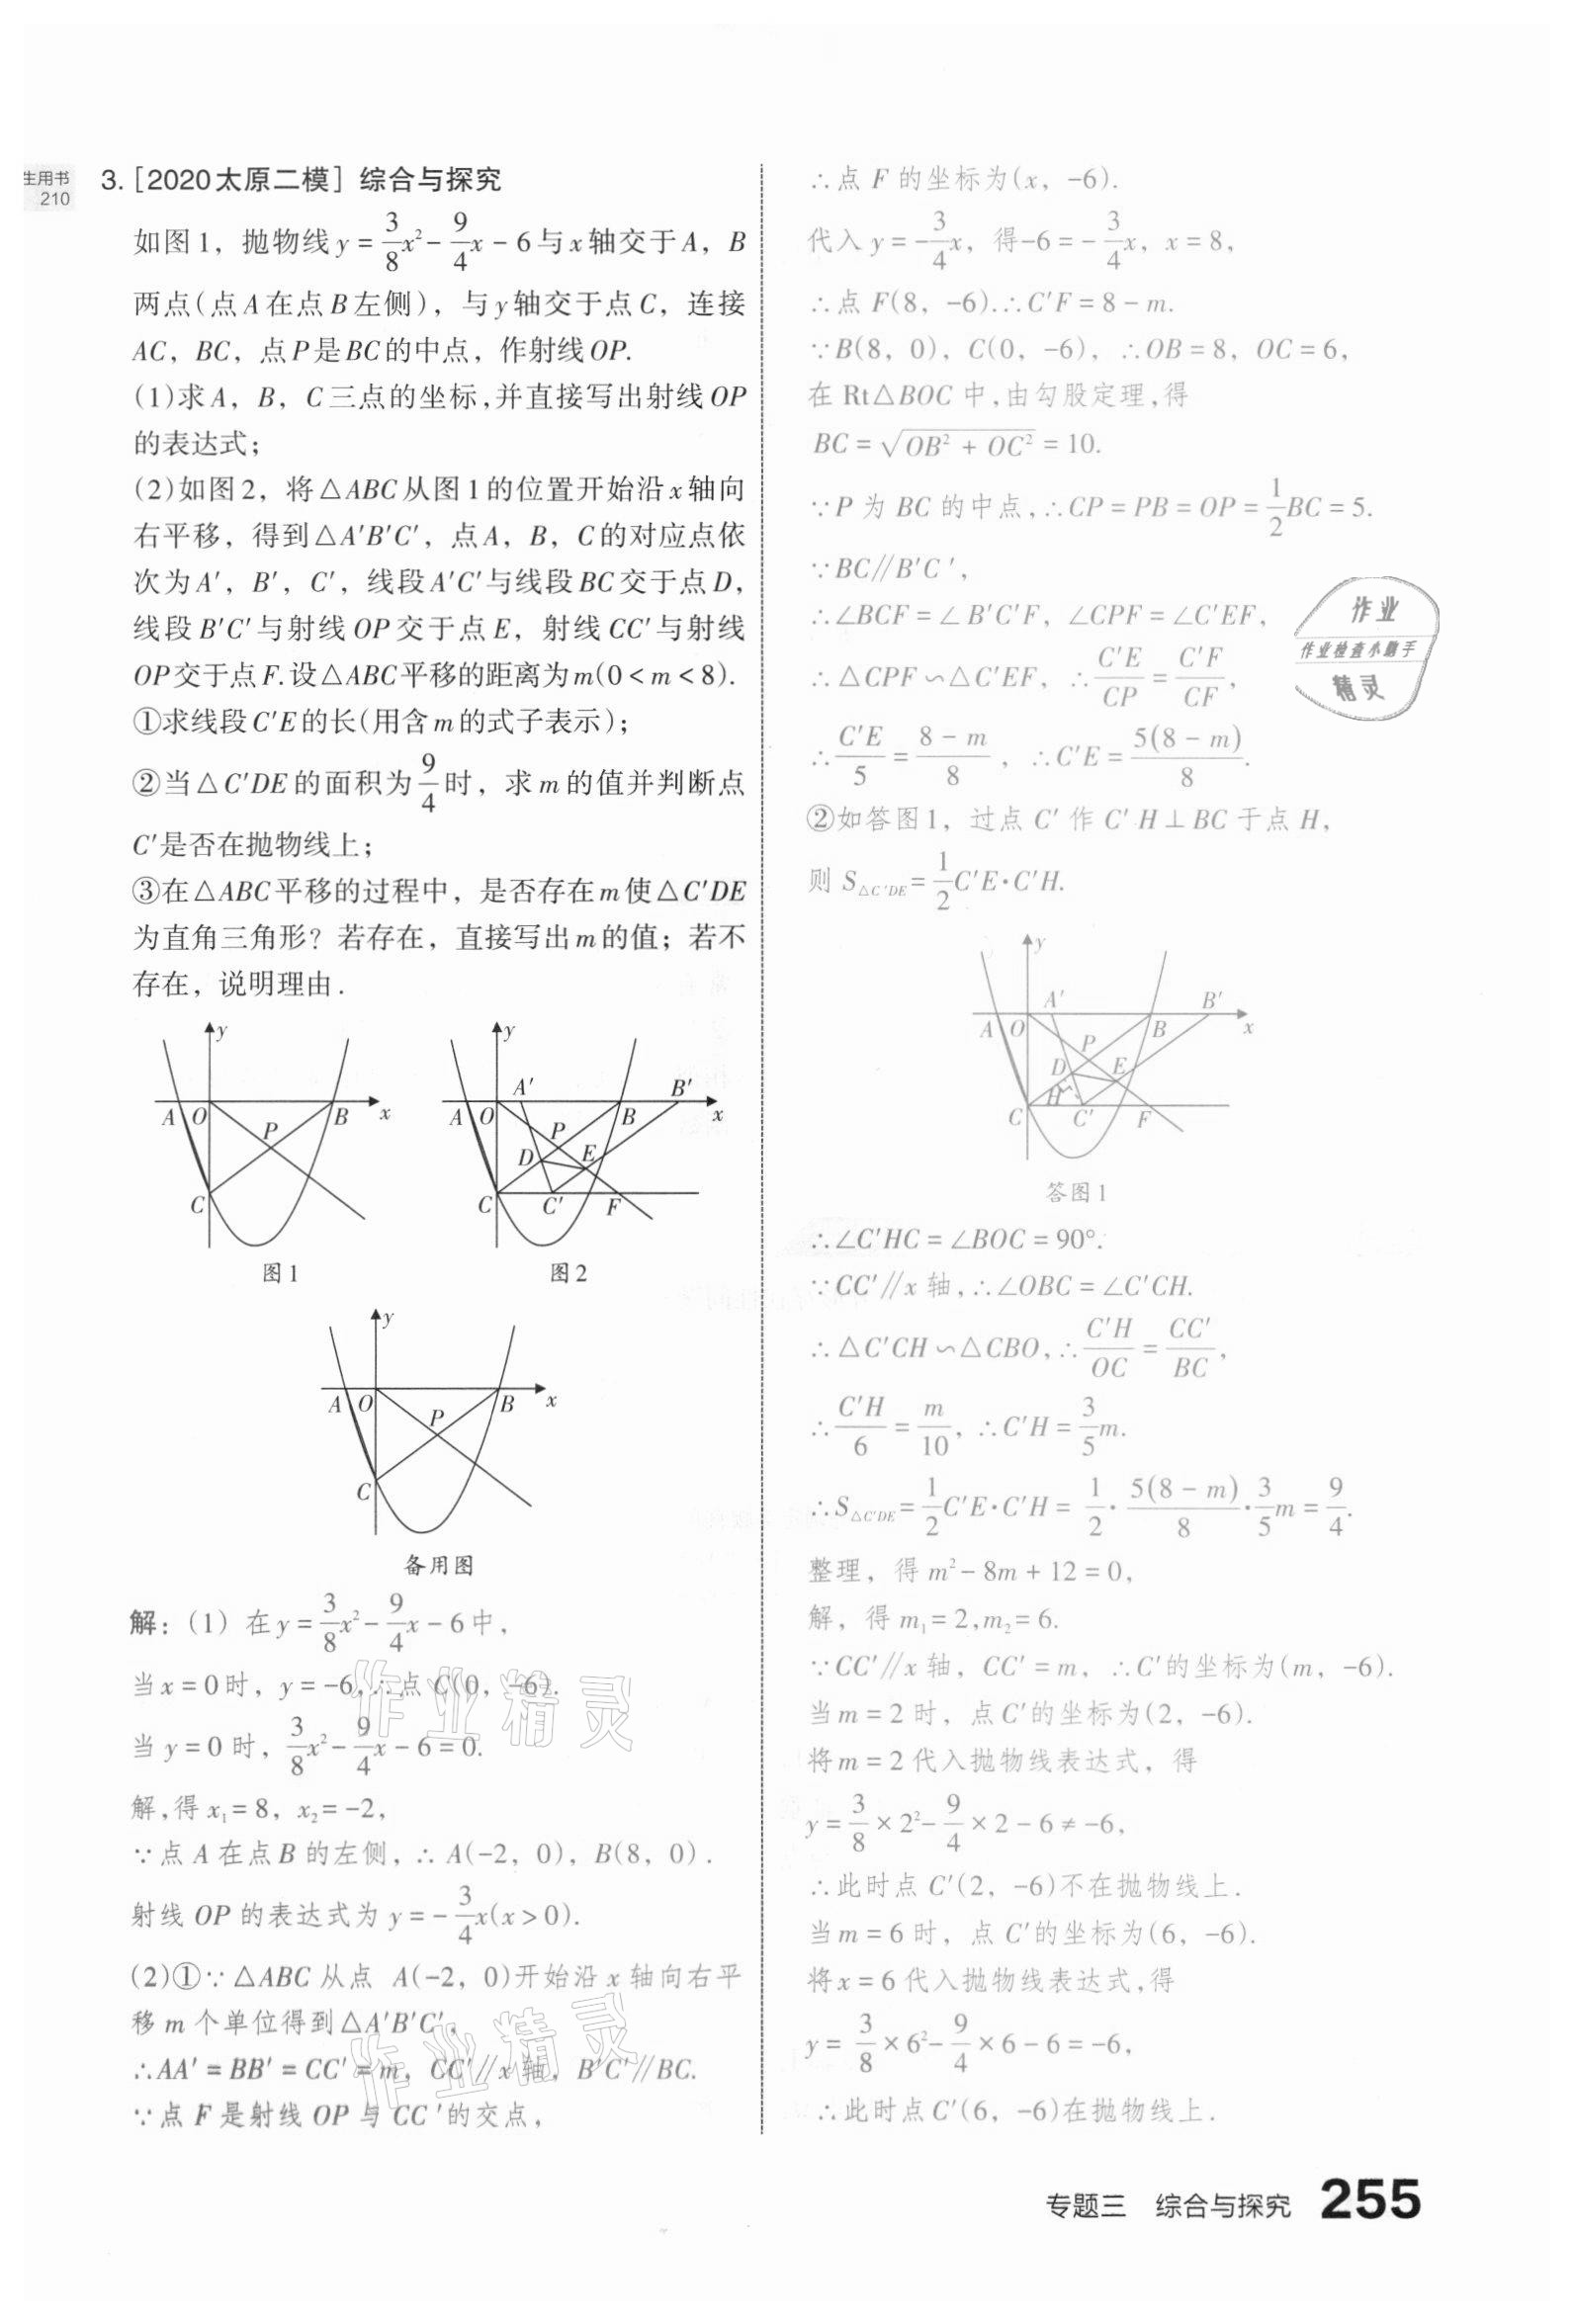 生用书
210
3. [2020太原二模] 综合与探究
如图1，抛物线y=3/8x²-9/4x-6与x轴交于A，B
两点(点A在点B左侧)，与y轴交于点C，连接
AC，BC，点P是BC的中点，作射线OP.
(1)求A，B，C三点的坐标,并直接写出射线OP
的表达式；
(2)如图2，将△ABC从图1的位置开始沿x轴向
右平移，得到△A′B′C′，点A，B，C的对应点依
次为A′，B′，C′，线段A′C′与线段BC交于点D，
线段B′C′与射线OP交于点E，射线CC′与射线
OP交于点F.设△ABC平移的距离为m(0<m<8).
①求线段C′E的长(用含m的式子表示)；
②当△C′DE的面积为9/4时，求m的值并判断点
C′是否在抛物线上；
③在△ABC平移的过程中，是否存在m使△C′DE
为直角三角形？若存在，直接写出m的值；若不
存在，说明理由.
y
A O B x
P
C
图1
y
A′ B′
A O B x
P
D E
C C′ F
图2
y
A O B x
P
C
备用图
解：(1) 在y=3/8x²-9/4x-6中，
当x=0时，y=-6,∴点C(0，-6).
当y=0时，3/8x²-9/4x-6=0.
解,得x₁=8，x₂=-2，
∵点A在点B的左侧，∴A(-2，0)，B(8，0).
射线OP的表达式为y=-3/4x(x>0).
(2)①∵△ABC从点 A(-2，0)开始沿x轴向右平
移m个单位得到△A′B′C′，
∴AA′=BB′=CC′=m，CC′∥x轴，B′C′∥BC.
∵点F是射线OP与CC′的交点，
∴点F的坐标为(x，-6).
代入y=-3/4x，得-6=-3/4x，x=8，
∴点F(8，-6).∴C′F=8-m.
∵B(8，0)，C(0，-6)，∴OB=8，OC=6，
在Rt△BOC中,由勾股定理,得
BC=√(OB²+OC²)=10.
∵P为BC的中点,∴CP=PB=OP=1/2BC=5.
∵BC∥B′C′，
∴∠BCF=∠B′C′F，∠CPF=∠C′EF，
∴△CPF∽△C′EF，∴C′E/CP=C′F/CF，
∴C′E/5=(8-m)/8，∴C′E=5(8-m)/8.
②如答图1，过点C′作C′H⊥BC于点H，
则S△C′DE=1/2C′E·C′H.
y
A′ B′
A O B x
P
D E
H
C C′ F
答图1
∴∠C′HC=∠BOC=90°.
∵CC′∥x轴,∴∠OBC=∠C′CH.
∴△C′CH∽△CBO,∴C′H/OC=CC′/BC，
∴C′H/6=m/10，∴C′H=3/5m.
∴S△C′DE=1/2C′E·C′H=1/2·5(8-m)/8·3/5m=9/4.
整理，得m²-8m+12=0，
解，得m₁=2,m₂=6.
∵CC′∥x轴，CC′=m，∴C′的坐标为(m，-6).
当m=2时，点C′的坐标为(2，-6).
将m=2代入抛物线表达式，得
y=3/8×2²-9/4×2-6≠-6，
∴此时点C′(2，-6)不在抛物线上.
当m=6时，点C′的坐标为(6，-6).
将x=6代入抛物线表达式,得
y=3/8×6²-9/4×6-6=-6，
∴此时点C′(6，-6)在抛物线上.
作业
作业检查小助手
精灵
作业精灵
作业精灵
专题三 综合与探究 255